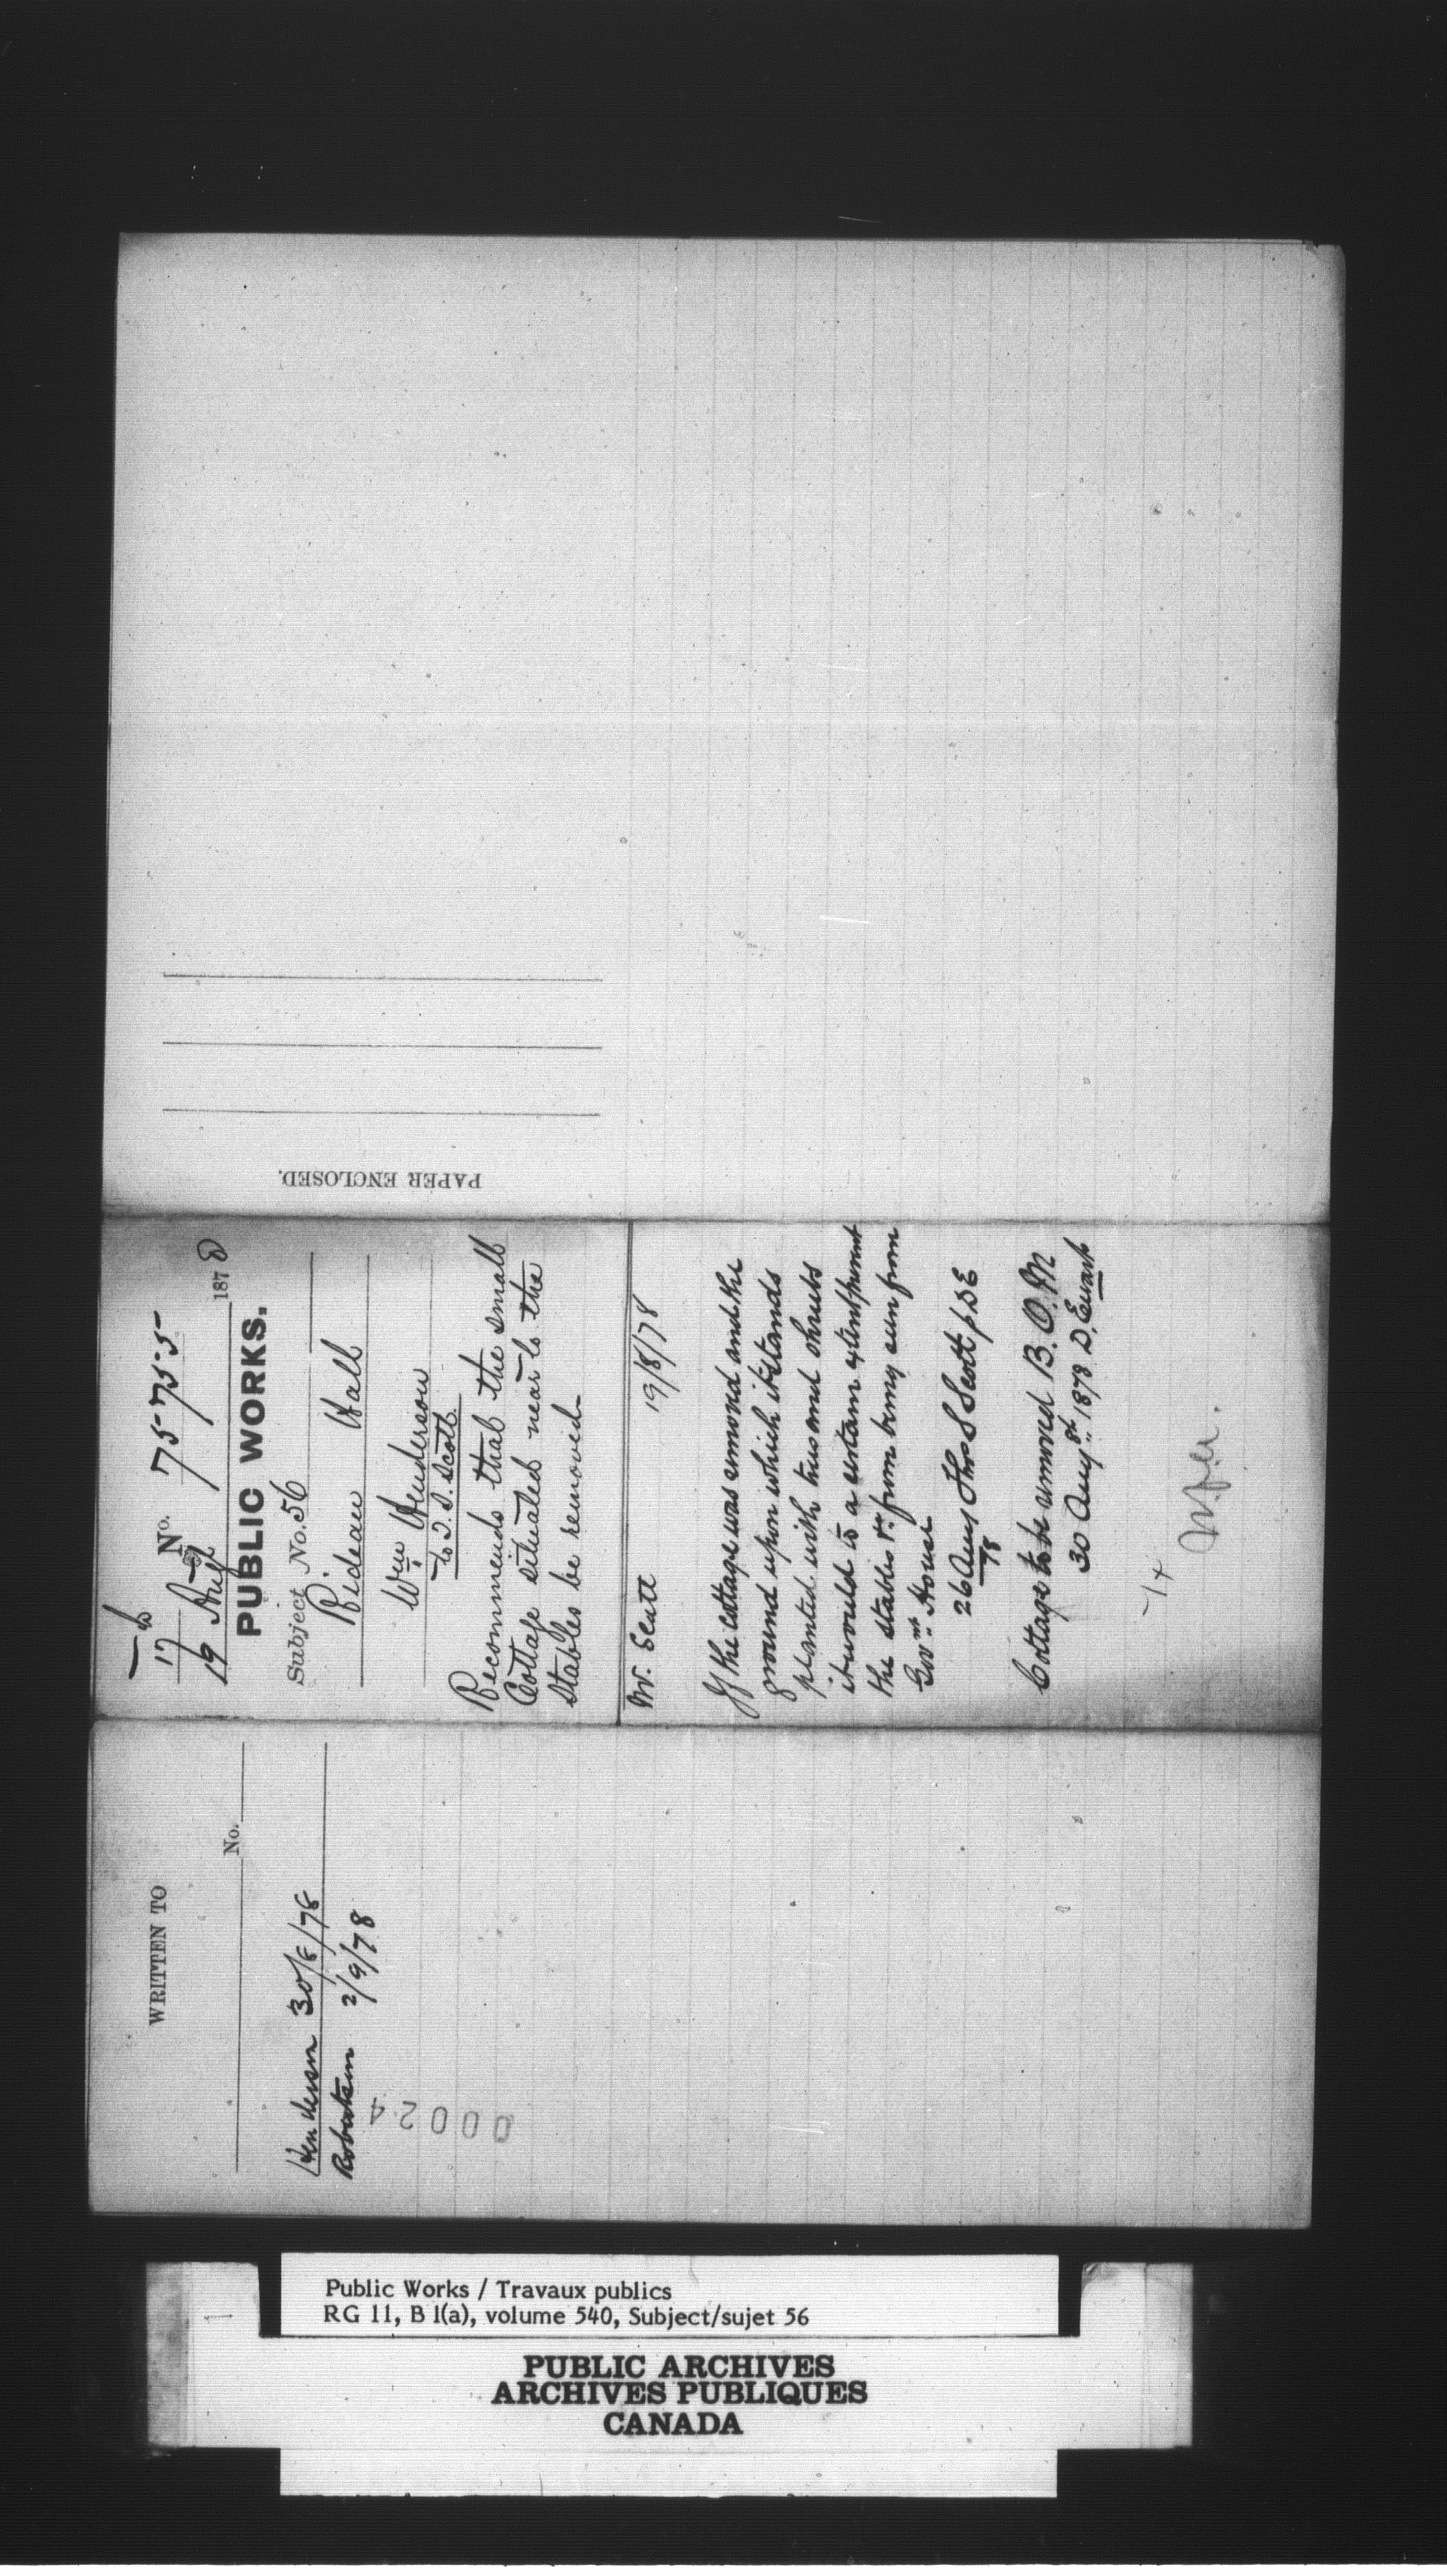 WRITTEN TO
No.
Henderson 30/8/78
Robertson 2/9/78
00024
17 No. 75755
19 Aug 1878
PUBLIC WORKS.
Subject No. 56
Rideau Hall
Wm Henderson
to T. S. Scott.
Recommends that the small
Cottage situated near to the
Stables be removed.
Mr. Scott 19/8/78
If the cottage was removed and the
ground upon which it stands
planted with trees and shrubs
it would to a certain extent prevent
the stables &c from being seen from
Govmt House
26 Aug Thos S Scott
78
Cottage to be removed B. O. M
30 Augst 1878 D. Ewart
PAPER ENCLOSED.
Public Works / Travaux publics
RG 11, B 1(a), volume 540, Subject/sujet 56
PUBLIC ARCHIVES
ARCHIVES PUBLIQUES
CANADA